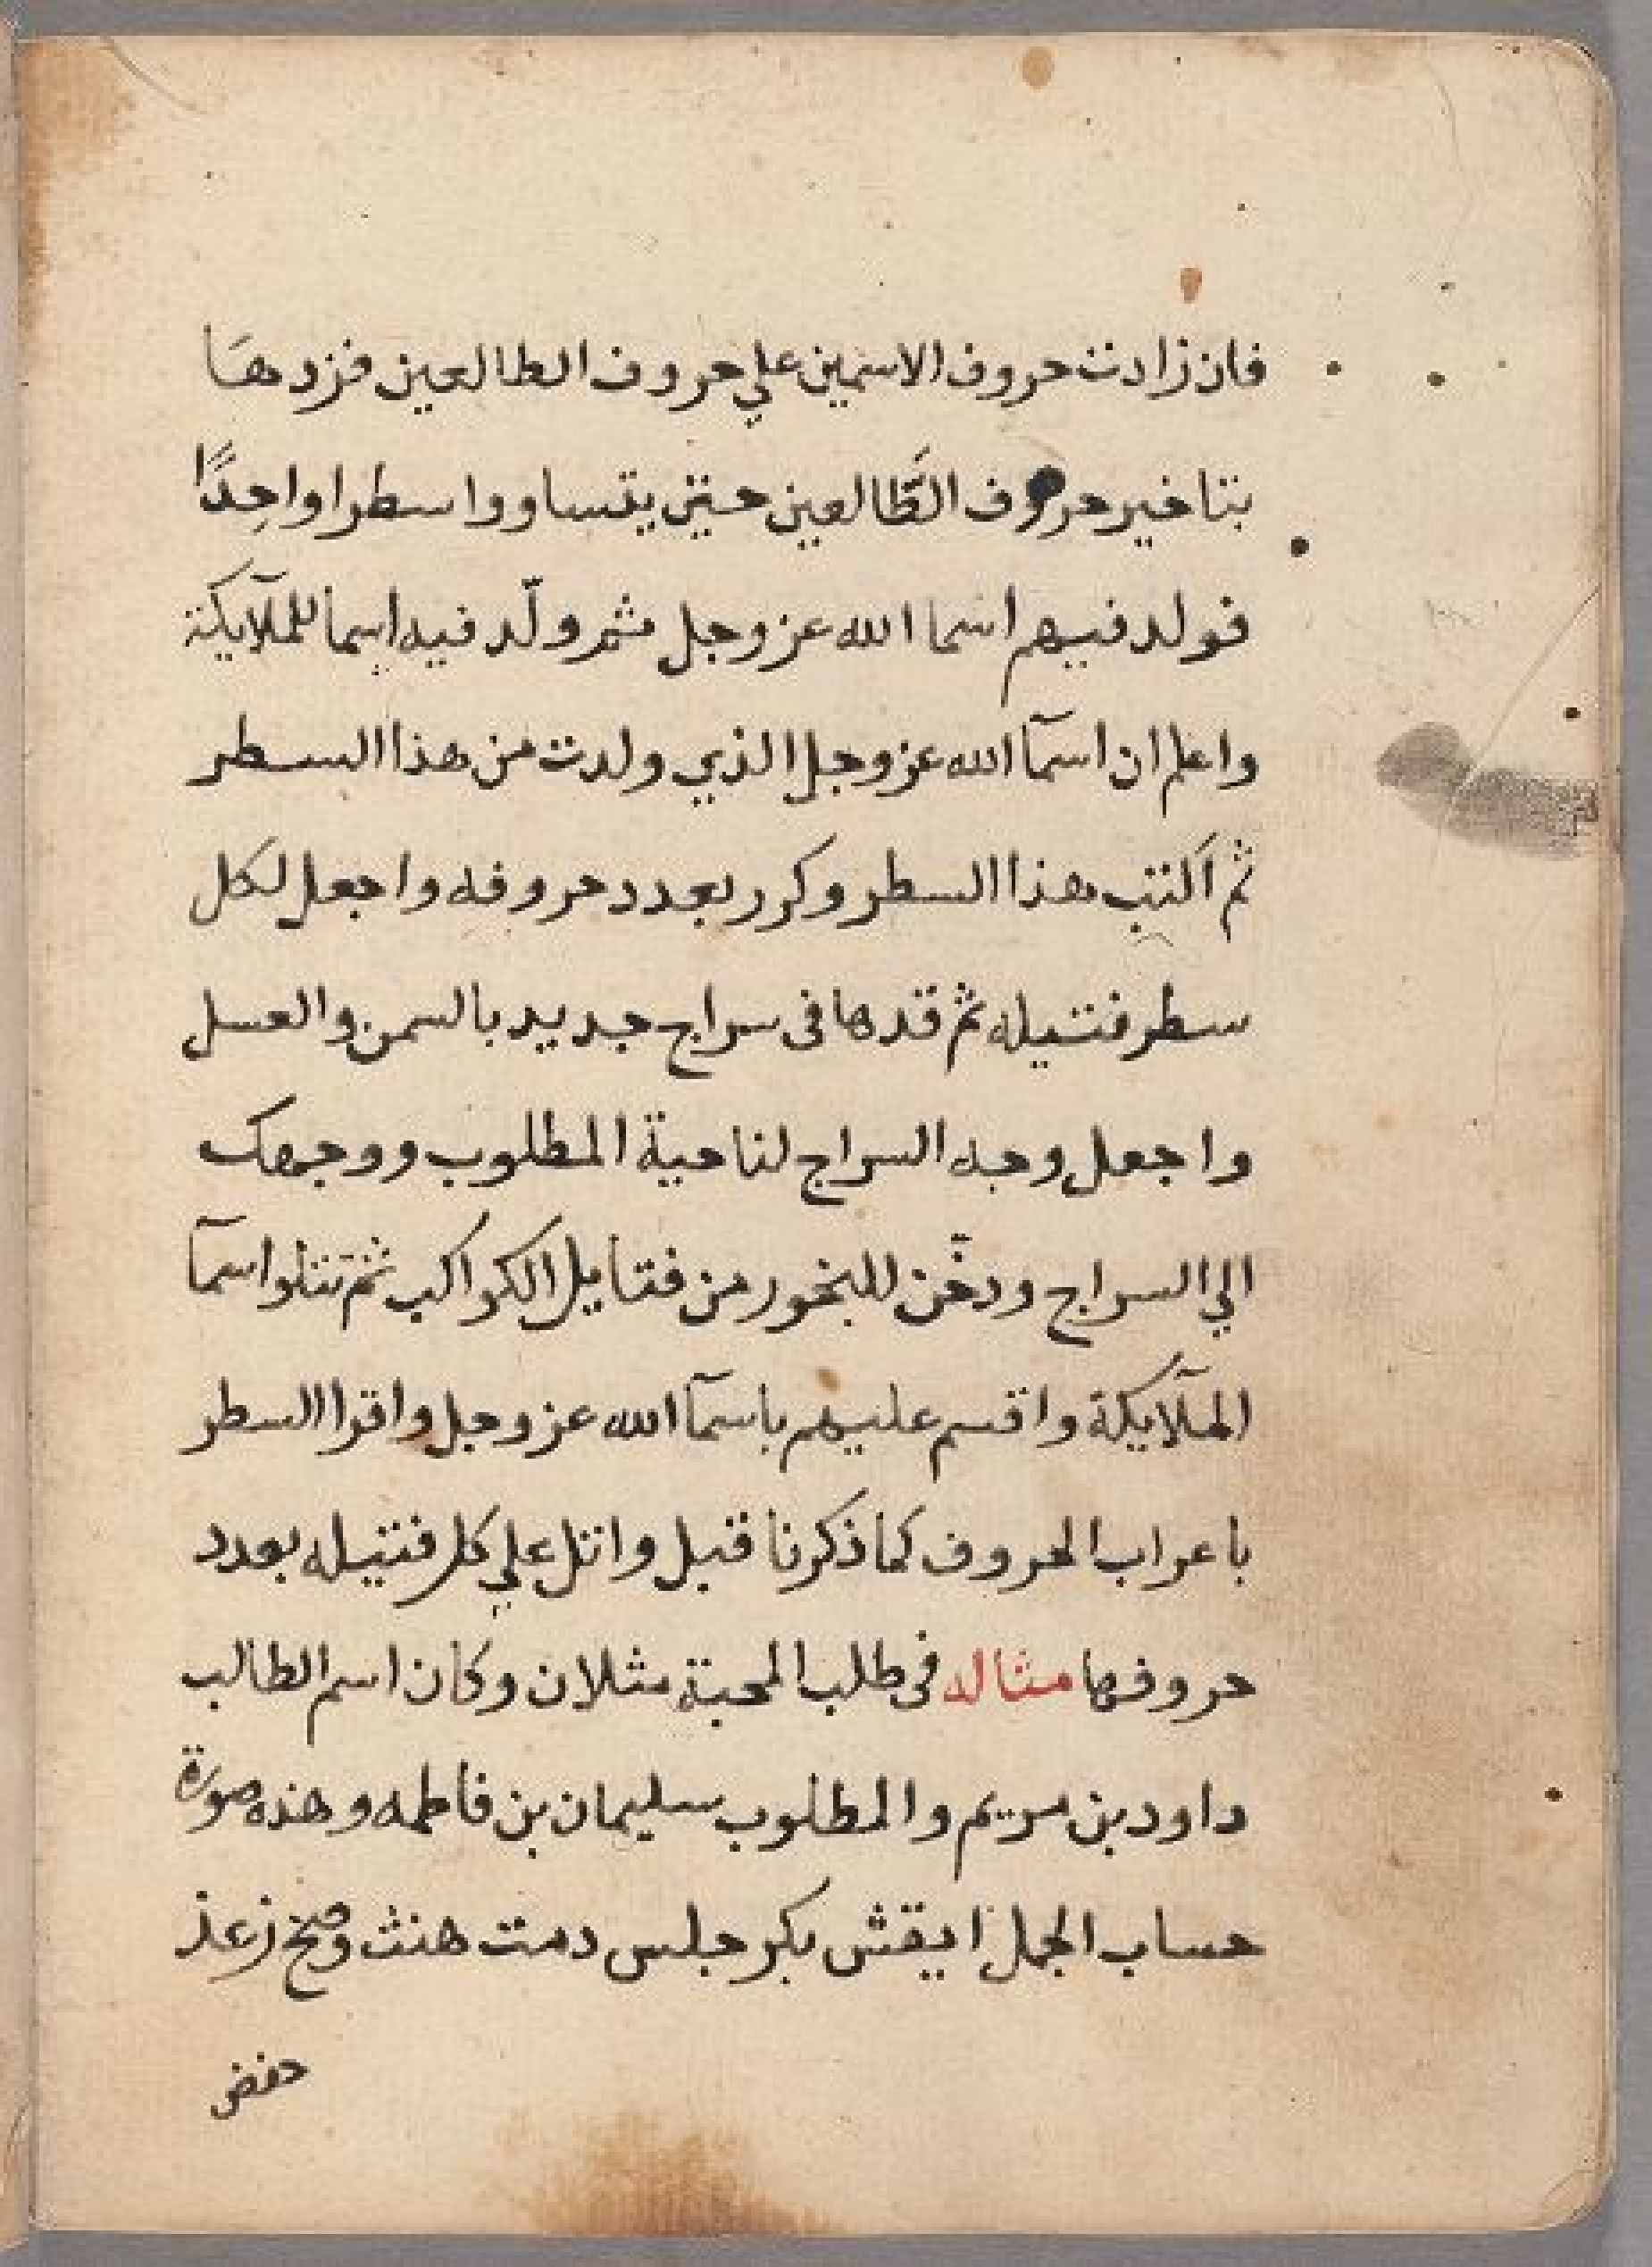 فان زادت حروف الاسمين علي حروف الطالعين فزدهَا
بتاخير حروف الطَّالعين حتي يتساووا سطرا واحِدًا
فولد فيهم اسما الله عز وجل ثم ولّد فيه اسما للملآيكة
واعلم ان اسمآ الله عز وجل الذي ولدت من هذا السطر
ثم اكتب هذا السطر وكرر بعدد حروفه واجعل لكل
سطر فتيله ثم قدها فى سراج جديد بالسمن والعسل
واجعل وجه السراج لناحية المطلوب ووجهك
الي السراج ودخّن للبخور من فتايل الكواكب ثم تتلوا اسمآ
الملآيكة واقسم عليهم باسمآ الله عز وجل واقرا السطر
باعراب الحروف كما ذكرنا قبل واتل علي كل فتيله بعدد
حروفها مثاله فى طلب المحبة مثلان وكان اسم الطالب
داود بن مريم والمطلوب سليمان بن فاطمه وهذه صورة
حساب الجمل ايقش بكر جلس دمت هنث وصخ زعذ
حفض